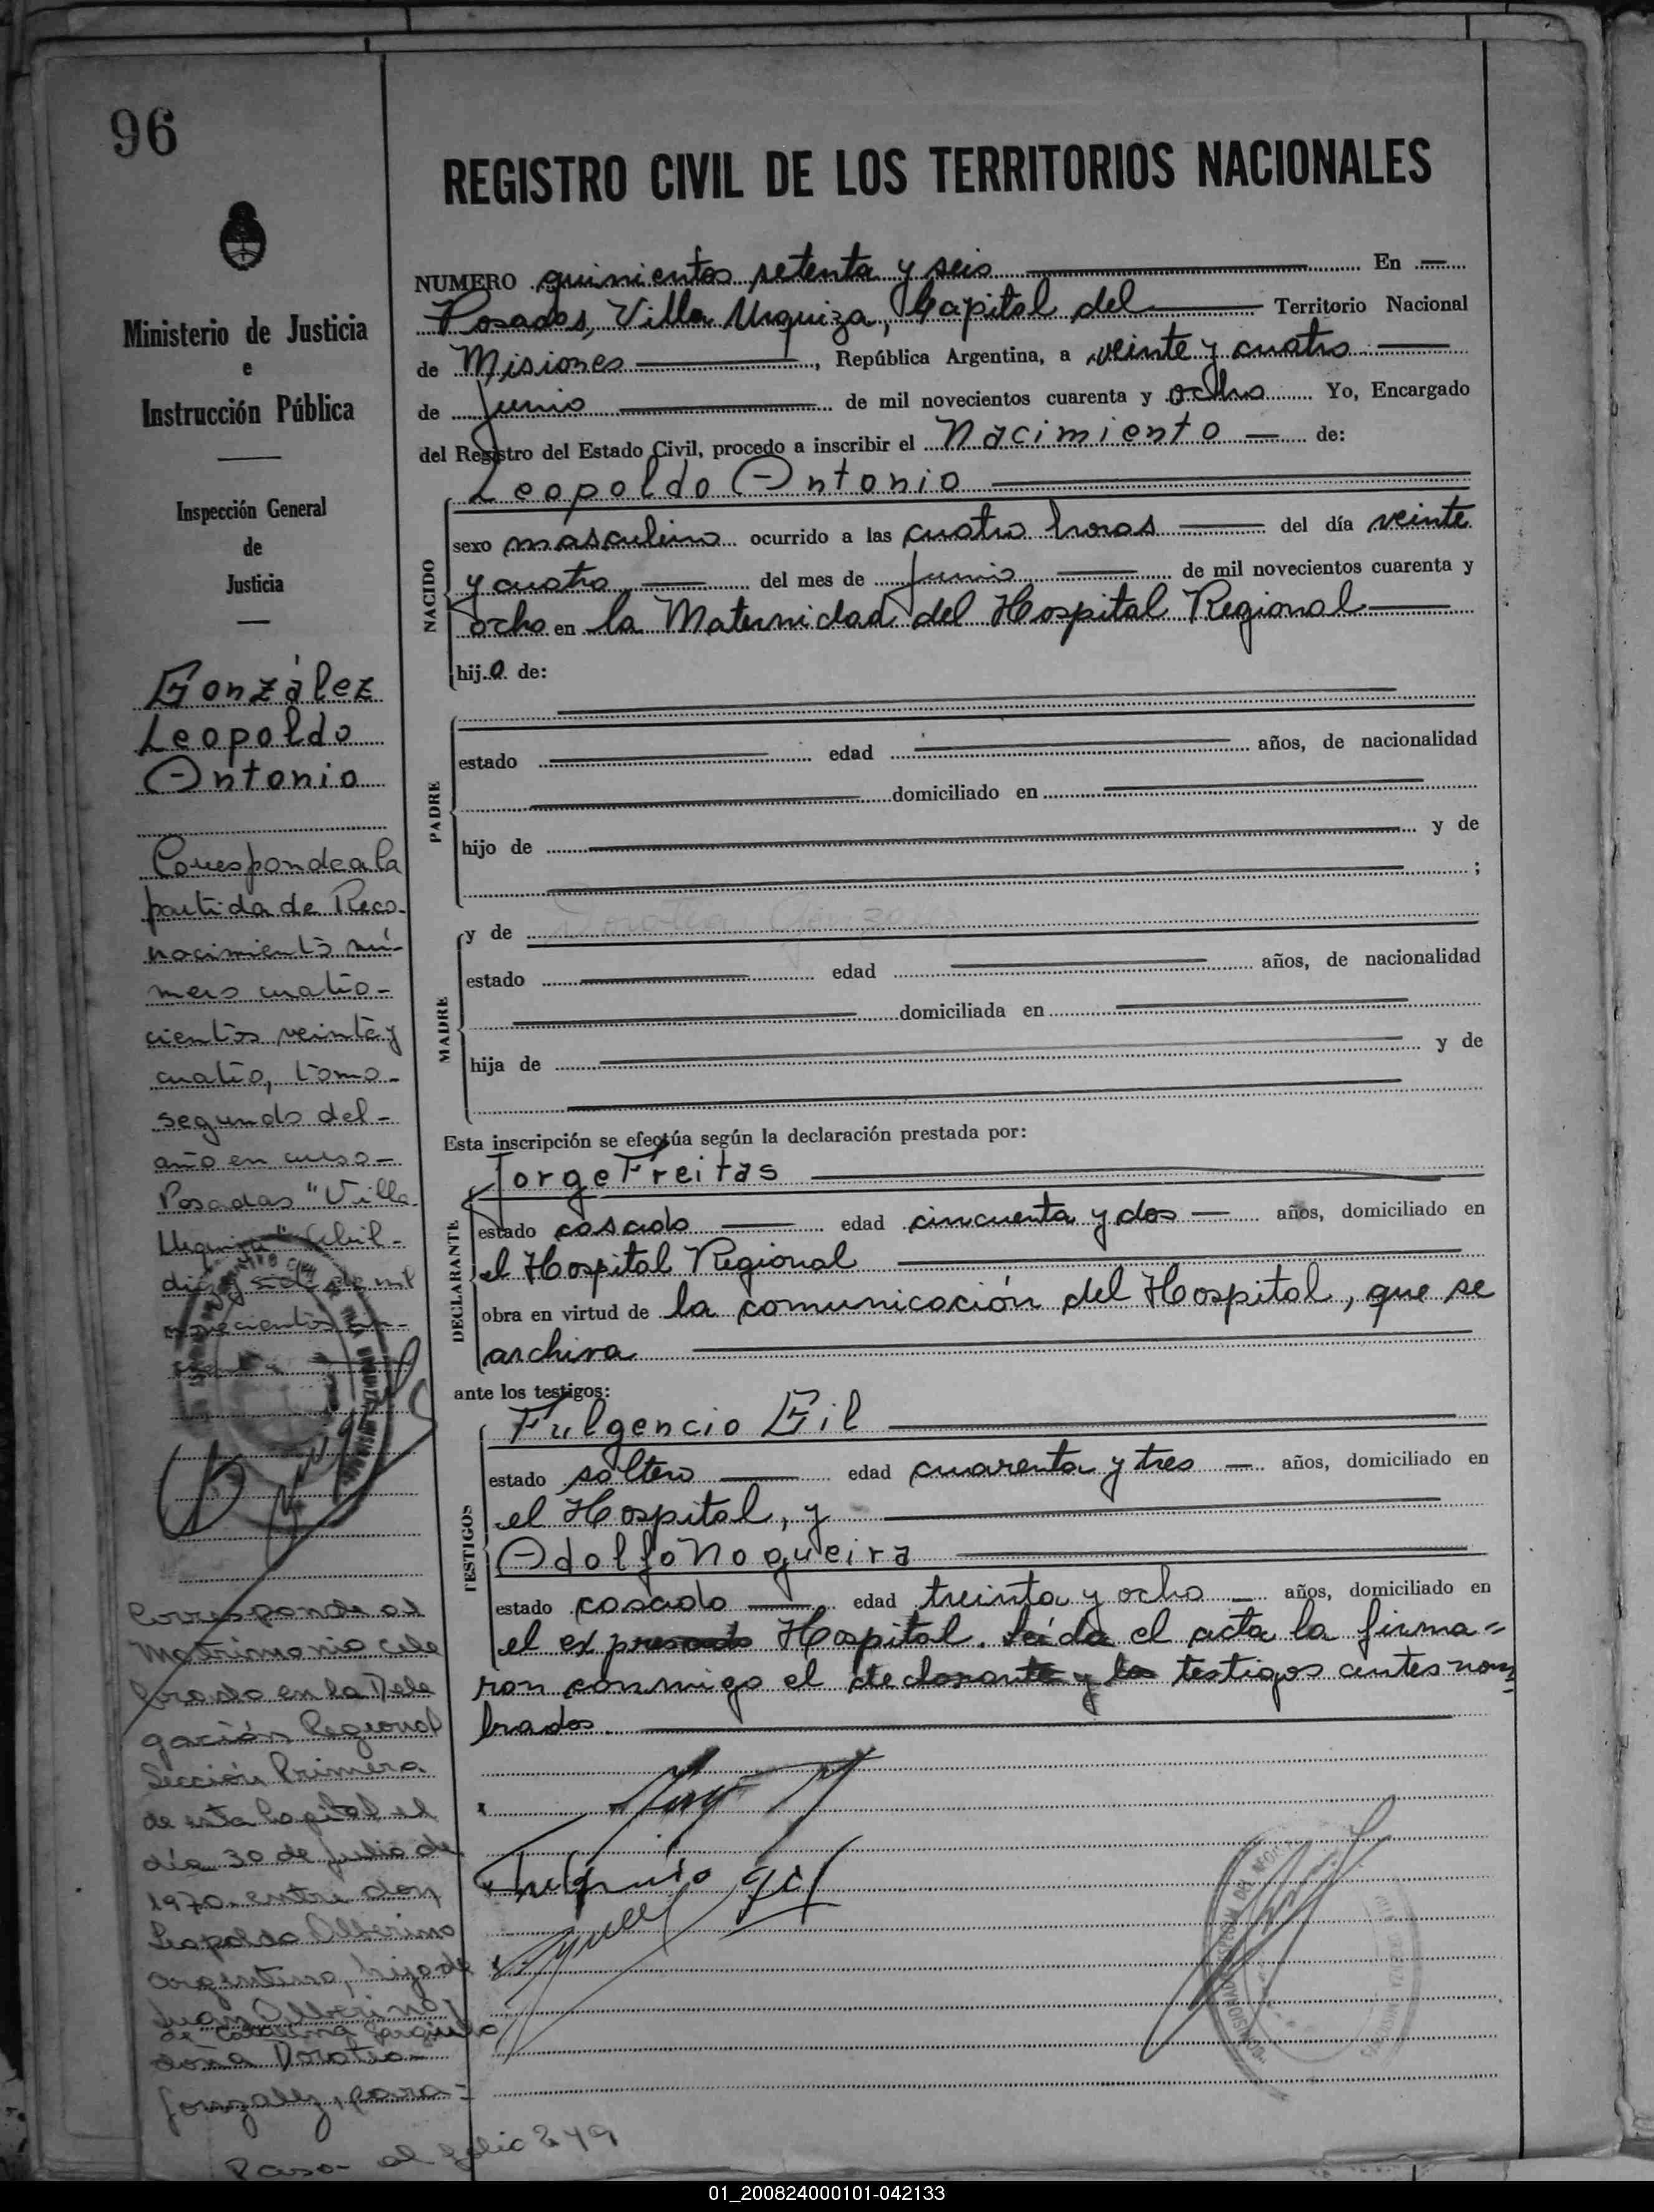 96
Ministerio de Justicia
e
Instrucción Pública
Inspección General
de
Justicia
González
Leopoldo
Antonio
Corresponde a la
partida de Reco-
nocimiento nú-
mero cuatro-
cientos veinte y
cuatro, tomo-
segundo del-
año en curso-
Posadas "Villa
Urquiza" Abril-
diez y de mil
novecientos
Corresponde al
Matrimonio cele
brado en la Dele
gación Regional
Sección Primera
de esta Capital el
día 30 de Julio de
1970 entre don
Leopoldo Albérino
argentino, hijo de
Juan Albérino y
de Catalina
doña Dorotea
González, para=
Pasa al folio 249
REGISTRO CIVIL DE LOS TERRITORIOS NACIONALES
NUMERO quinientos setenta y seis En
Posadas, Villa Urquiza, Capital del Territorio Nacional
de Misiones, República Argentina, a veinte y cuatro
de junio de mil novecientos cuarenta y ocho Yo, Encargado
del Registro del Estado Civil, procedo a inscribir el Nacimiento de:
NACIDO
Leopoldo Antonio
sexo masculino ocurrido a las cuatro horas del día veinte
y cuatro del mes de junio de mil novecientos cuarenta y
ocho en la Maternidad del Hospital Regional
hijo de:
PADRE
estado edad años, de nacionalidad
domiciliado en
hijo de y de
;
MADRE
y de
estado edad años, de nacionalidad
domiciliada en
hija de y de
Esta inscripción se efectúa según la declaración prestada por:
DECLARANTE
Jorge Freitas
estado casado edad cincuenta y dos años, domiciliado en
el Hospital Regional
obra en virtud de la comunicación del Hospital, que se
archiva
ante los testigos:
TESTIGOS
Fulgencio Gil
estado soltero edad cuarenta y tres años, domiciliado en
el Hospital, y
Adolfo Nogueira
estado casado edad treinta y ocho años, domiciliado en
el expresado Hospital. Leída el acta la firma=
ron conmigo el declarante y los testigos antes nom=
brados.
Fulgencio Gil
01_200824000101-042133